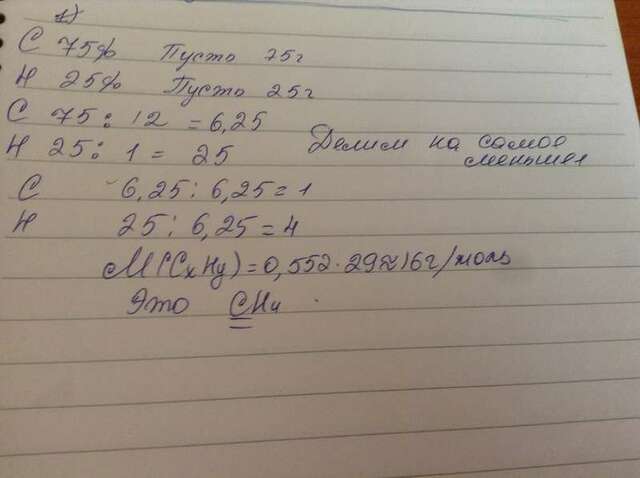 1)
С 75% Пусть 75г
Н 25% Пусть 25г
С 75 : 12 = 6,25
Н 25 : 1 = 25 Делим на самое
меньшее
С 6,25 : 6,25 = 1
Н 25 : 6,25 = 4
М(CxHy) = 0,552 · 29 ≈ 16г/моль
Это CH4